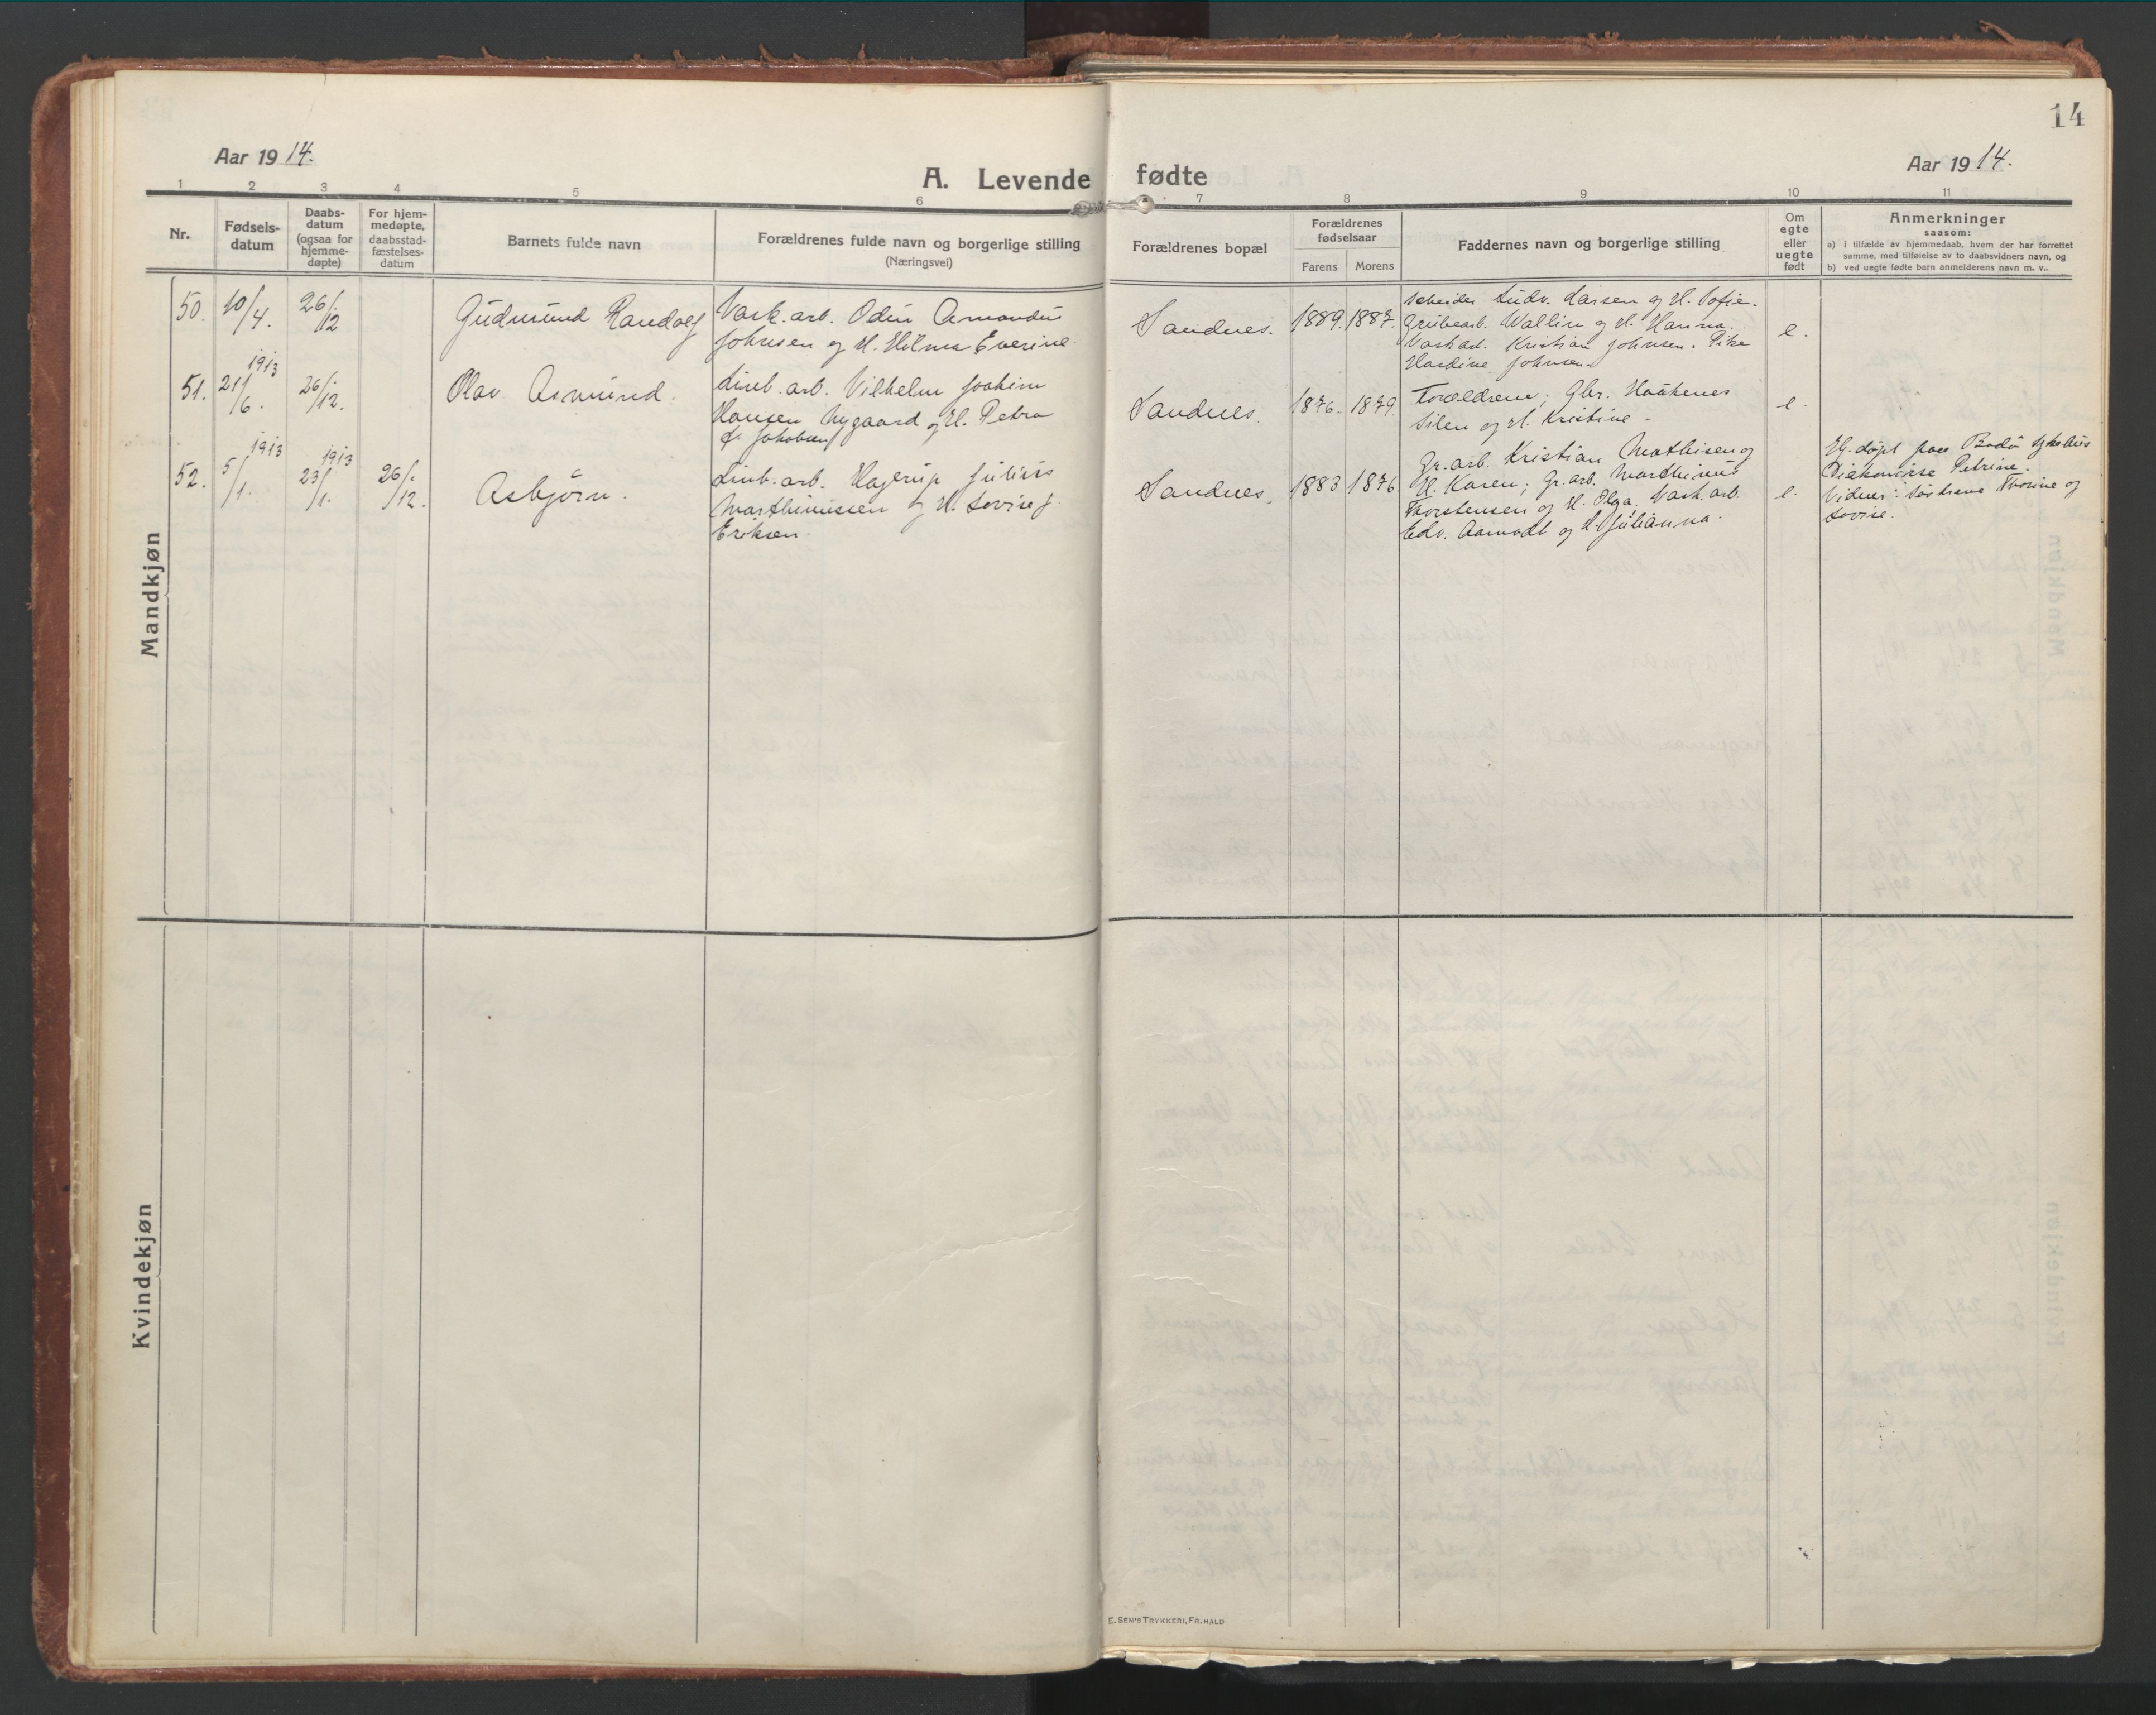 14
Aar 1914.
A. Levende fødte
Aar 1914.
1 2 3 4 5 6 7 8 9 10 11
Nr.
Fødsels-
datum
Daabs-
datum
(ogsaa for
hjemme-
døpte)
For hjem-
medøpte,
daabsstad-
fæstelses-
datum
Barnets fulde navn
Forældrenes fulde navn og borgerlige stilling
(Næringsvei)
Forældrenes bopæl
Forældrenes
fødselsaar
Farens Morens
Faddernes navn og borgerlige stilling
Om
egte
eller
uegte
født
Anmerkninger
saasom:
a) i tilfælde av hjemmedaab, hvem der har forrettet
samme, med tilføielse av to daabsvidners navn, og
b) ved uegte fødte barn anmelderens navn m. v..
Mandkjøn
50. 10/4. 26/12
Gudmund Randolf
Vask. arb. Odin Amandus
Johnsen og H. Hilma Everine
Sandnes. 1889. 1887.
Ludv. Larsen og H. Sofie.
Grubearb. Wallin og H. Hanna.
Vaskarb. Kristian Johnsen. Pike
Hardine Johnsen.
e.
1913
51. 21/6. 26/12.
Olav Asmund.
Linb. arb. Vilhelm Joakim
Hansen Nygaard og H. Petra
f. Jakobsen
Sandnes. 1876. 1879.
Forældrene; Gbr. Haakenes
Silen og H. Kristine
e.
1913 1913
52. 5/1. 23/1. 26/12.
Asbjörn.
Linb. arb. Hagerup Julius
Marthinussen og H. Lovise f.
Eriksen
Sandnes. 1883 1876.
Gr. arb. Kristian Mathisen og
H. Karen; Gr. arb. Mardhinus
Thorstensen og H. Olga. Vask. arb.
Edv. Aamodt og H. Julianna.
e.
Hj. døpt paa Bodö sykehus
Diakonisse Petrine.
Vidner: Søstrene Thorine og
Lovise.
Kvindekjøn
E. SEM'S TRYKKERI, FR. HALD